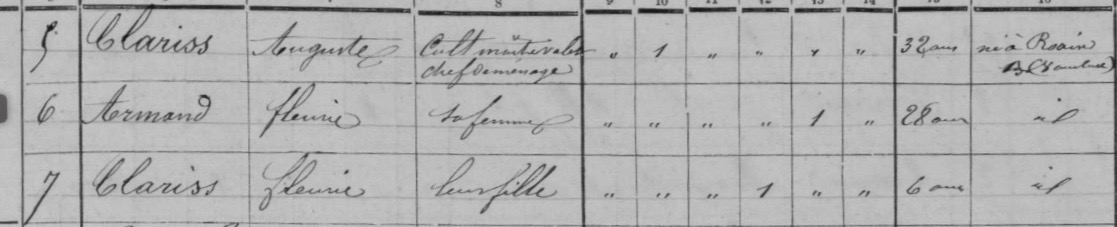 8 9 10 11 12 13 14
5 Clariss Auguste Cult maître valet " 1 " " " " 32 ans né à
chef de ménage
6 Armand fleurie sa femme " " " " 1 " 28 ans id
7 Clariss fleurie leur fille " " " 1 " " 6 ans id